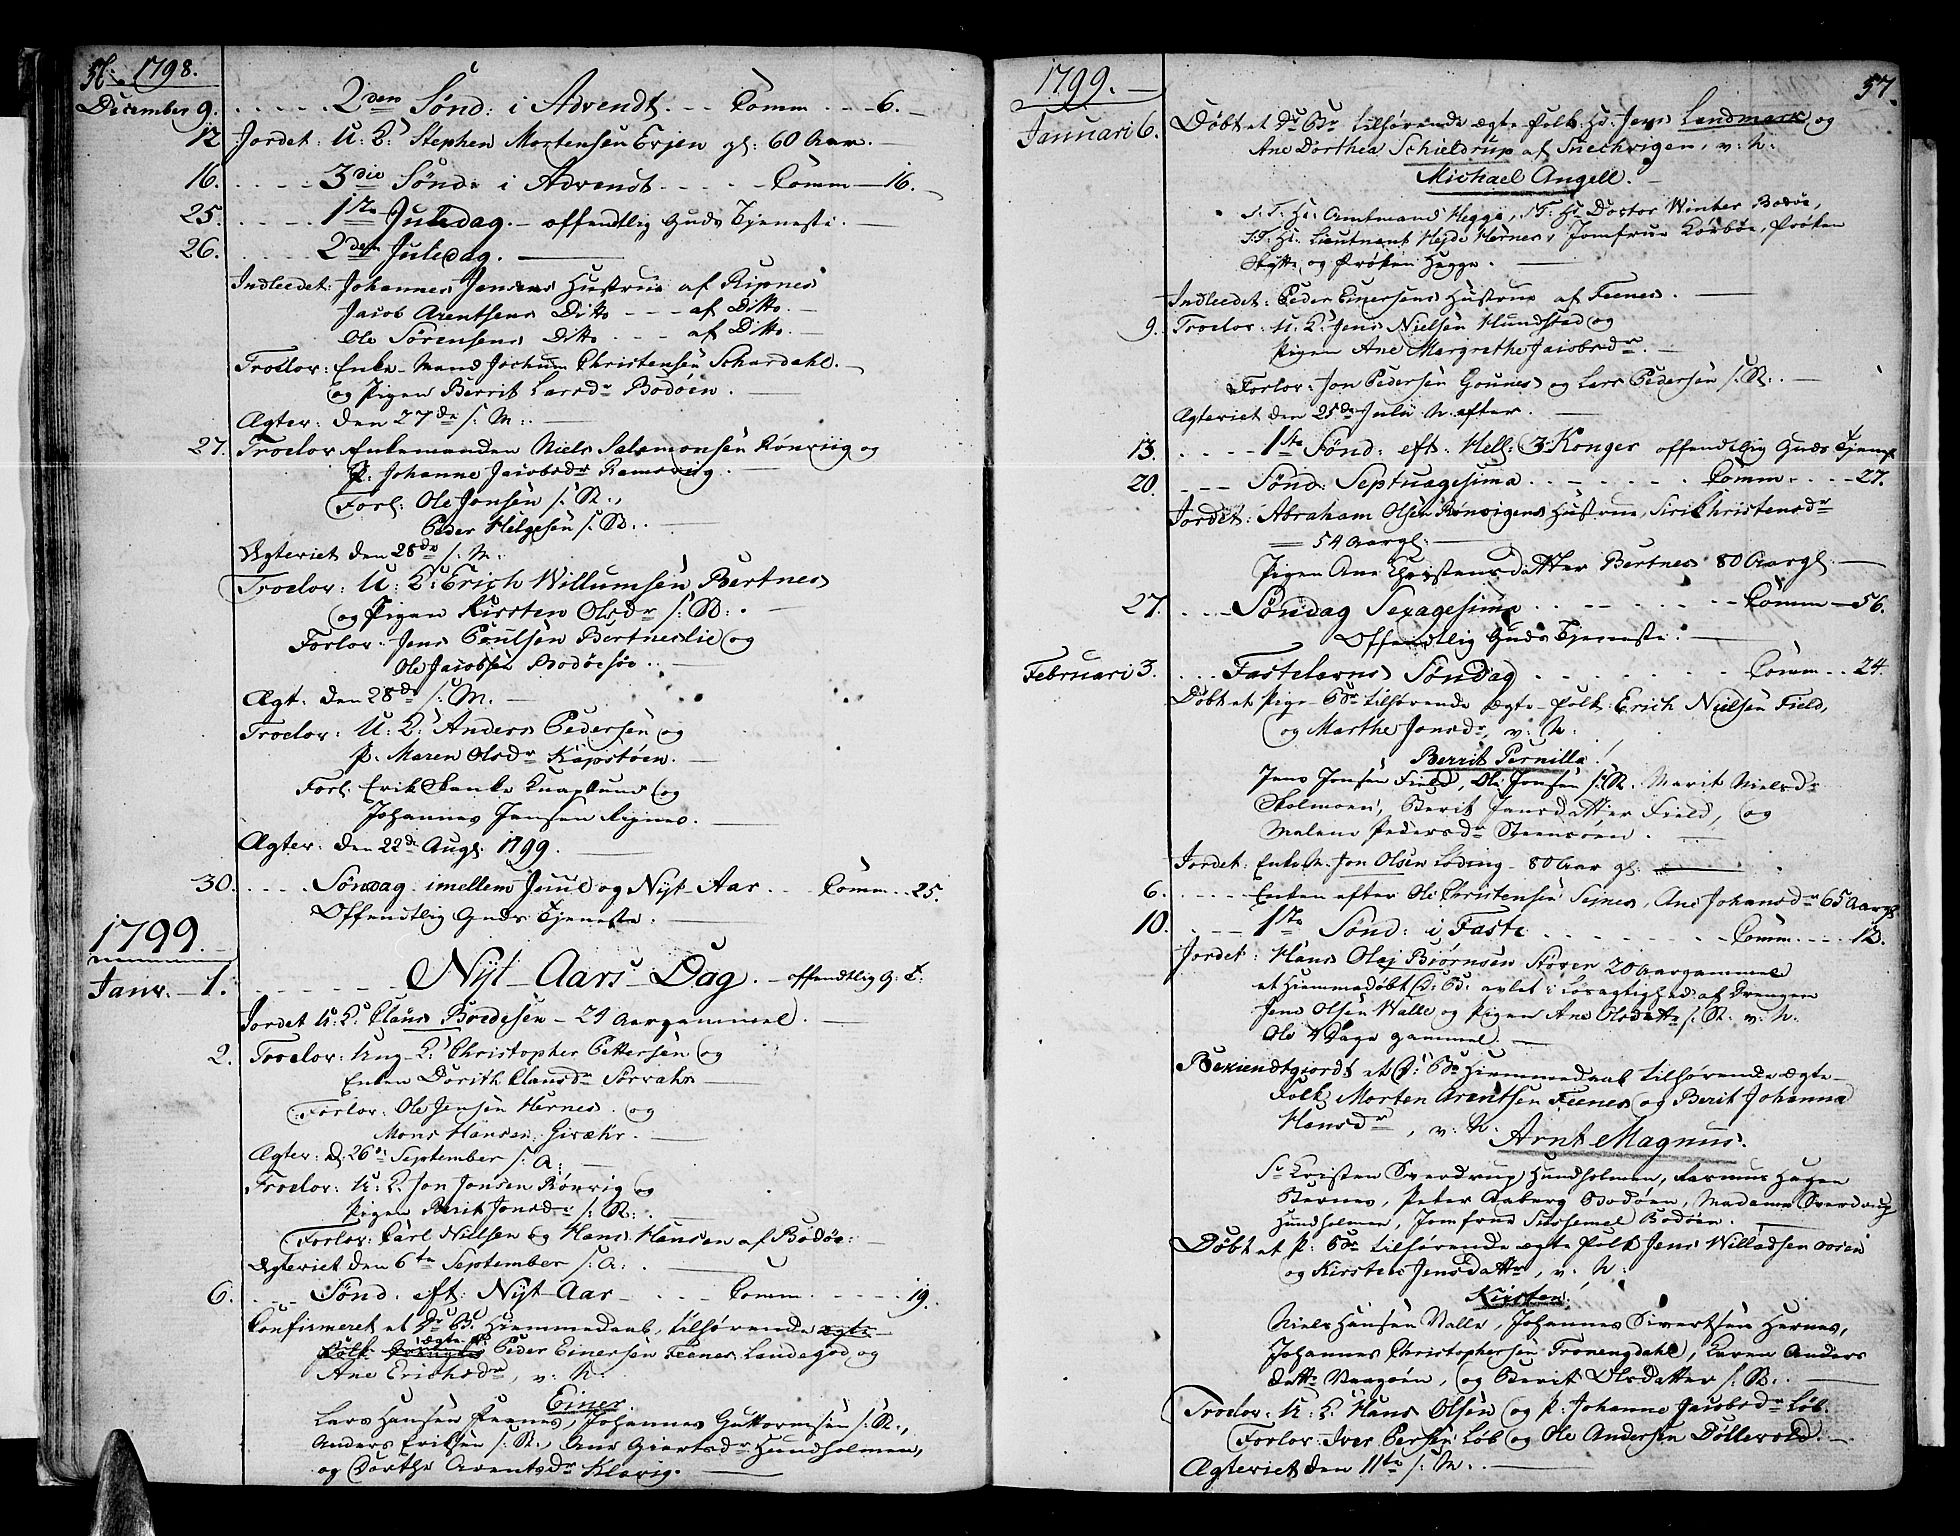 56. 1798.
December 9. 2den Sønd: i Advendt. Comm 6.
12 Jordet: U: K: Stephen Mortensen Erjen gl: 60 Aar.
16. 3die Sønd: i Advendt. Comm 16.
25. 1te Juledag. offendtlig Guds Tjeneste.
26. 2den Juledag.
Indleedet: Johannes Jensens Hustrue af Ripnes
Jacob Arentsens Ditto af Ditto.
Ole Sørensens Ditto af Ditto.
Troelov: Enke-Mand Jochum Christensen Schardahl.
og Pigen Berrit Larsdr Bodøen.
Ægter: den 27de s: M:
27. Troelov Enkemanden Niels Salamonsen Rønviig og
P: Johanne Jacobsdr Ramsviig.
Forl: Ole Jonsen s: St:,
Peder Helgesen s: St:.
Ægteviet den 28de s: M:
Troelov: U: K: Erich Willumsen Bertnes
og Pigen Kirsten Olsdr s: St:.
Forlov: Jens Poulsen Bertneslie og
Ole Jacobsen Bodøesøe.
Ægt: den 28de s: M.
Troelov: U: K: Anders Pedersen og
P: Maren Olsdr Kopstøen.
Forl: Erik Skanke Knaplund og
Johannes Jansen Rignes.
Ægter: den 22de Augs: 1799.
30. Søndag imellem Juul og Nyt-Aar Comm 25.
Offendtlig Guds Tjeneste.
1799.
Janv. 1. Nyt-Aars-Dag. offendtlig G: T:
Jordet U: K: Claus Bredesen 21 Aar gammel.
2. Troelov: Ung-K: Christopher Pettersen og
Enken Dorith Clausdr Sørvahr
Forlov: Ole Jensen Hernes og
Mons Hansen Givæhr.
Ægter: d: 26de September s: A:
Troelov: U: K: Jon Jonsen Rønvig og
Pigen Berit Jonsdr s: St:.
Forlov: Carl Nielsen og Hans Hansen af Bodøe:
Ægteviet den 6te September s: A:.
6. Sønd. eft: Nyt-Aar Comm. 19.
Confirmeret et Dr: B: Hiemmedaab, tilhørende ægte
Folk ægte F: Peder Einersen Feenes Landegod og
Ane Erichsdr, v: N:
Einer.
Lars Hansen Feenes, Johannes Guttormsen s: St.,
Anders Eriksen s: St., Ane Giertsdr Hundholmen,
og Dorthe Arentsdr Klavig.
1799. 57.
Januari 6. Døbt et Dr Br tilhørende ægte Folk: Hr: Jens Landmark og
Ane Dorthea Schieldrup af Sneehvigen, v: N:
Michael Angell.
S: T: Hr: Amtmand Hegge, S: T: Hr Doctor Winter Bodøe,
S: T: Hr: Lieutnant Hejde Hernes, Jomfrue Kørbøe, Frøken
Skytte og Frøken Hegge.
Indleedet: Peder Einersens Hustrue af Feenes.
9. Troelov: U: K: Jens Nielsen Hundstad og
Pigen Ane Margrethe Jacobsdr.
Forlov: Jon Pedersen Gounes og Lars Pedersen s: St:.
Ægteviet den 25de Julii N. efter.
13. 1te Sønd: eft: Hell: 3 Konger offendtlig Guds Tjenest
20. Sønd: Septuagesima Comm 27.
Jordet: Abraham Olsen Rønvigens Hustrue, Siri Christensdr
54 Aar gl:
Pigen Ane Christensdatter Bertnes 80 Aar gl.
27. Søndag Sexagesima Comm 56.
Offendtlig Guds Tjeneste.
Februari 3. Fastelavns Søndag Comm 24.
Døbt et Pige-Br tilhørende ægte-Folk: Erich Nielsen Field,
og Marthe Jonsdr, v: N:
Berrit Pernilla.
Jens Jonsen Field, Ole Jonsen s: St. Marit Nielsdr
Skolmoen, Berit Jansdatter Field, og
Malene Pedersdr Steensoen.
Jordet: Enkem. Jon Olsen Løding 80 Aar gl.
6. Enken efter Ole Christensen Seines, Ane Johansdr 65 Aar gl
10. 1te Sønd: i Faste Comm. 12.
Jordet: Hans Olaj Biørnsen Støver 20 Aar gammel
et Hiemmedøbt D: B: avlet i Løsagtighed af Drengen
Jens Olsen Walle og Pigen Ane Olsdatt: s: St. v: N.
Ole 4 Dage gammel.
Bekiendtgiordt et D: Br Hiemmedaab tilhørende ægte
Folk Morten Arentsen Feenes og Berit Johanna
Hansdr, v: N.
Arnt Magnus.
Sr Kristen Sverdrup Hundholmen, Rasmus Hagen
Bernes, Peter Aaberg Bodøen, Madame Sverdrup
Hundholmen, Jomfrue Sussemel Bodøen.
Døbt et P: Br tilhørende ægte Folk Jens Willadsen
og Kirsten Jensdattr, v: N:
Kirsten.
Niels Hansen Valle, Johannes Sivertsen Hernes,
Johannes Christophersen Troneng dahl, Karen Anders
datt: Vaagøen, og Berit Olsdatter s: St:.
Troelov: U: K: Hans Olsen og P: Johanne Jacobsdr Løb.
Forlov: Iver Persen Løb og Ole Andersen Døllevold.
Ægteviet den 11te s: M:.